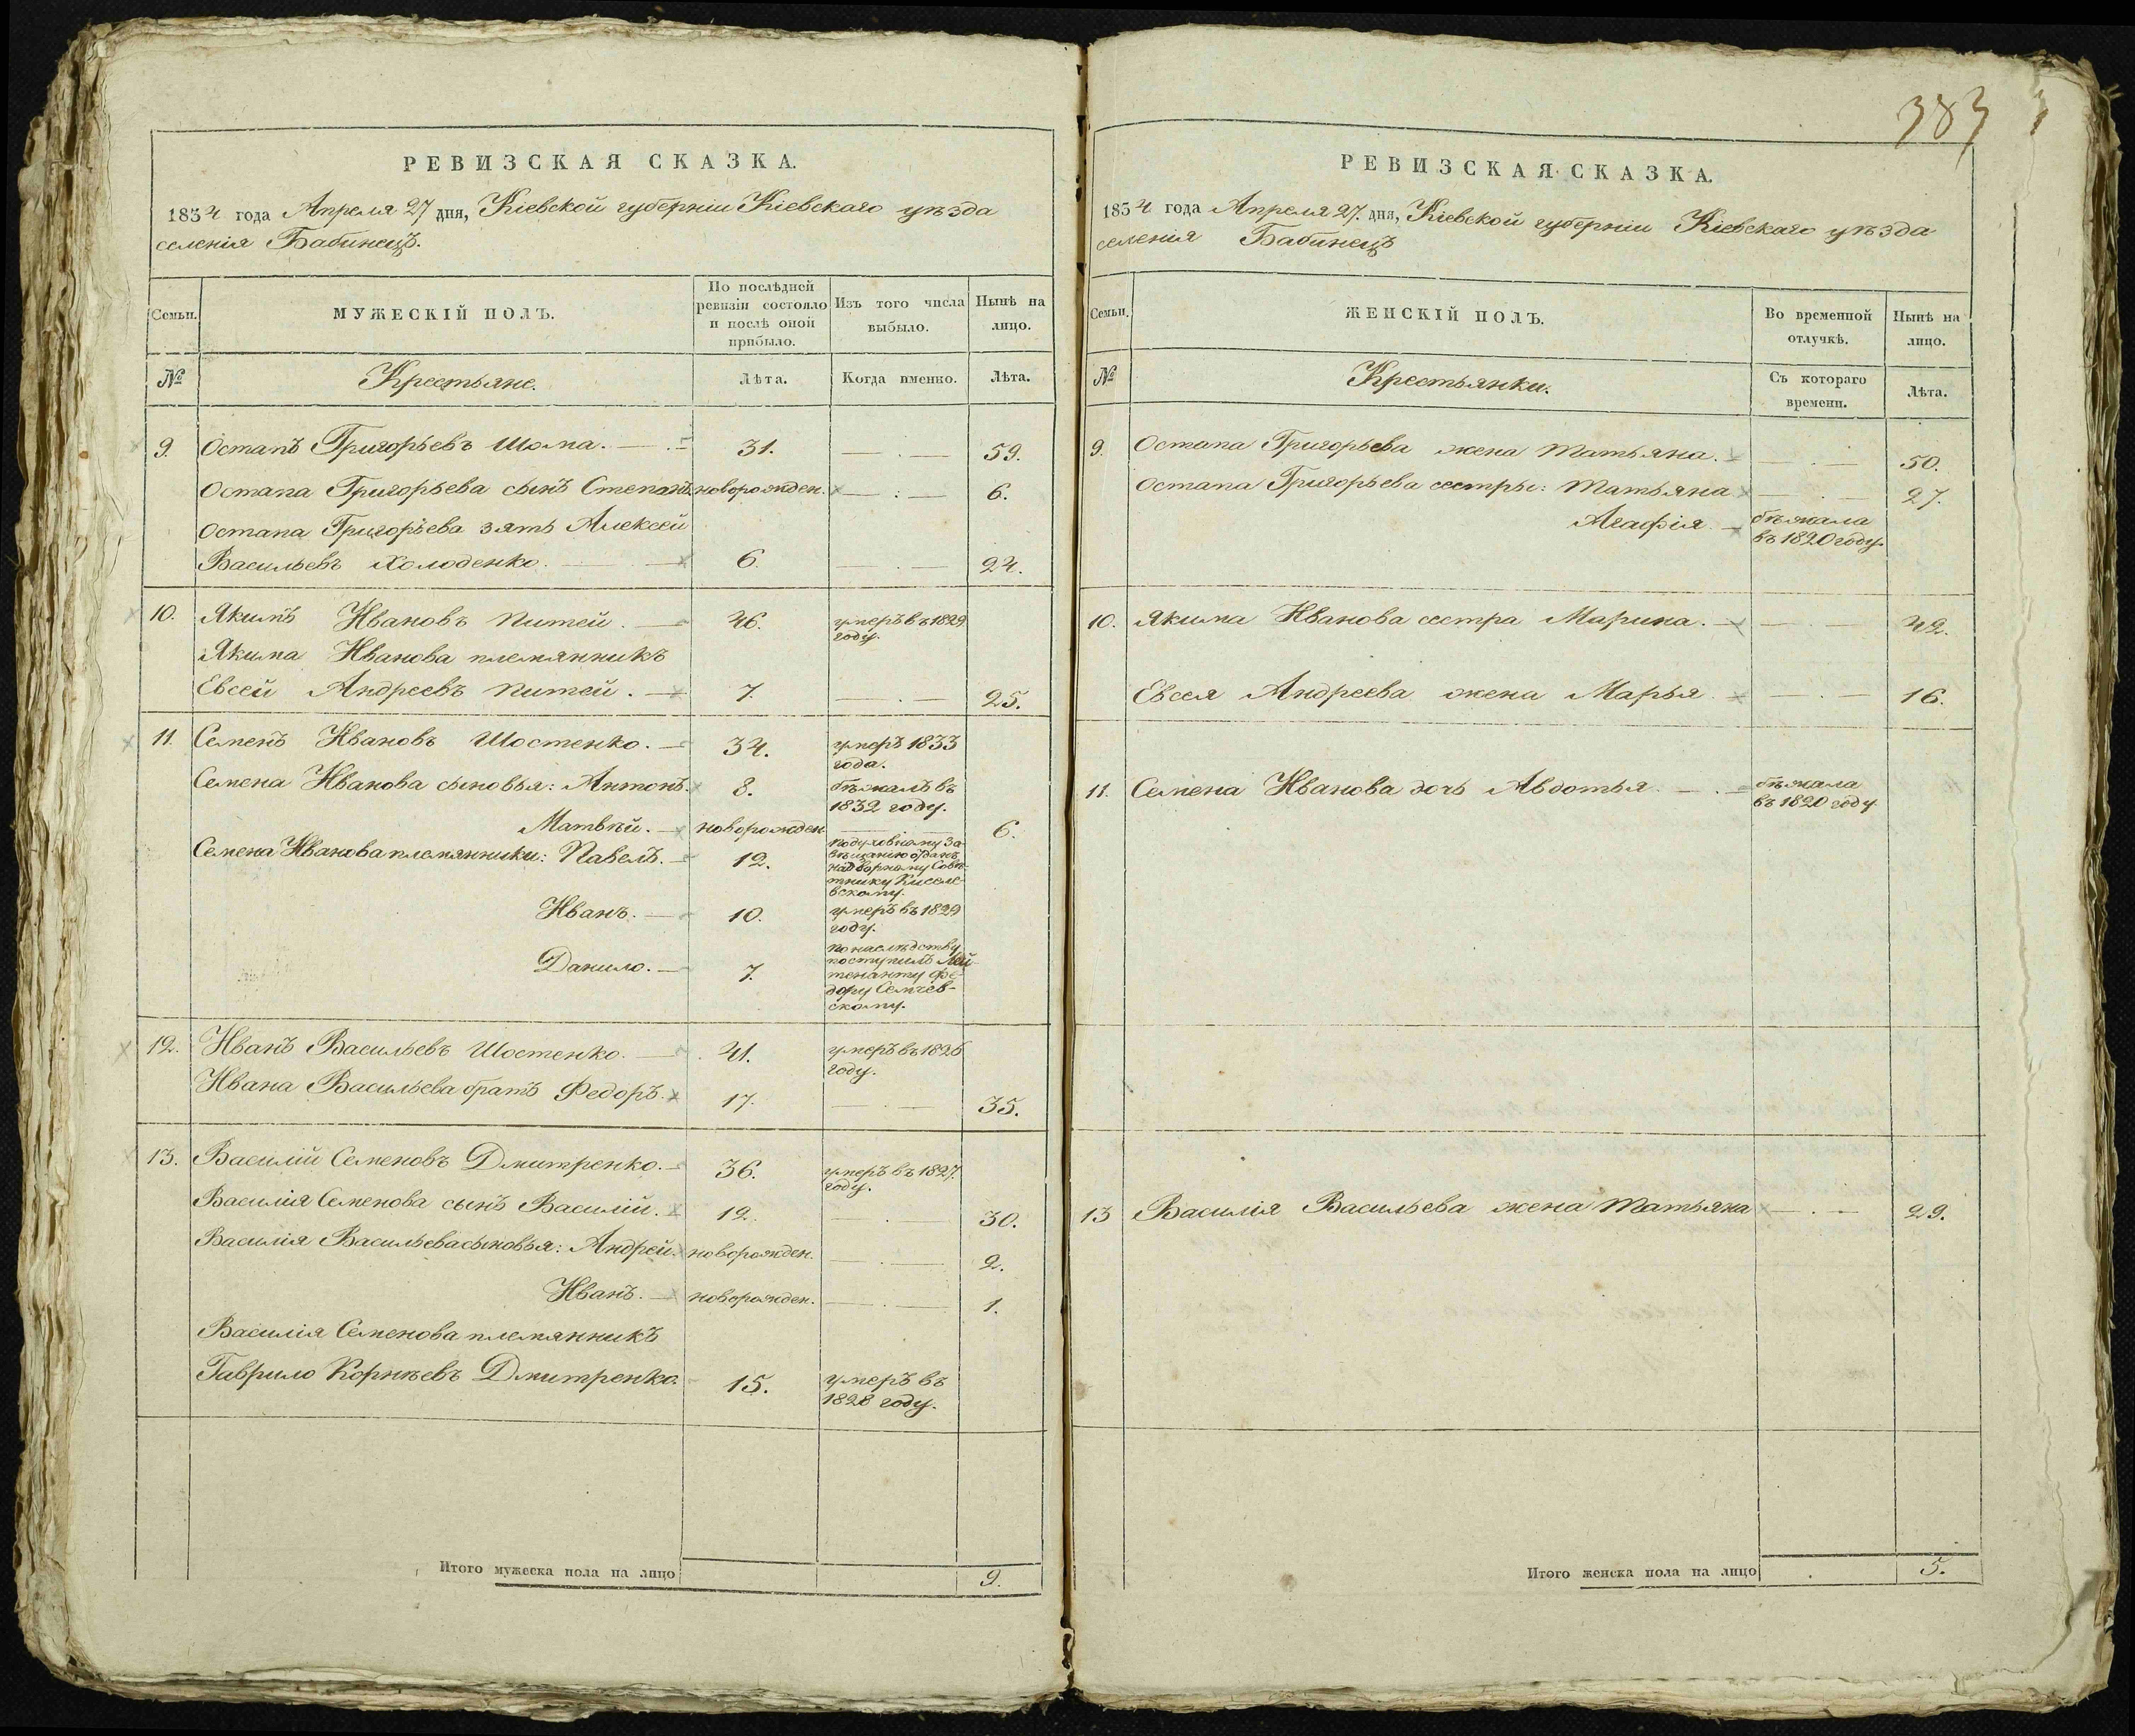 РЕВИЗСКАЯ СКАЗКА.
1834 года Апреля 27 дня, Кіевской губерніи Кіевскаго уѣзда
селенія Бабинецъ.
Семьи.
МУЖЕСКІЙ ПОЛЪ.
По послѣдней
ревизіи состояло
и послѣ оной
прибыло.
Изъ того числа
выбыло.
Нынѣ на
лицо.
№
Крестьяне.
Лѣта.
Когда именно.
Лѣта.
9. Остапъ Григорьевъ Шома. 31. 59.
Остапа Григорьева сынъ Степанъ. новорожден. 6.
Остапа Григорьева зять Алексей
Васильевъ Холоденко. 6. 24.
10. Якимъ Ивановъ Питей. 46. умеръ въ 1829
году.
Якима Иванова племянникъ
Евсей Андреевъ Питей. 7. 25.
11. Семенъ Ивановъ Шостенко. 34. умеръ 1833
года.
Семена Иванова сыновья: Антонъ. 8. бѣжалъ въ
1832 году.
Матвѣй. новорожден 6.
Семена Иванова племянники: Павелъ. 12. по духовному за-
вѣщанію отданъ
надворному Совѣ-
тнику Киселе-
вскому.
Иванъ. 10. умеръ въ 1829
году.
Данило. 7. по наслѣдству
поступилъ Лей-
тенанту Фе-
дору Семчев-
скому.
12. Иванъ Васильевъ Шостенко. 41. умеръ въ 1826
году.
Ивана Васильева братъ Федоръ. 17. 35.
13. Василій Семеновъ Дмитренко. 36. умеръ въ 1827.
году.
Василія Семенова сынъ Василій. 12. 30.
Василія Васильева сыновья: Андрей. новорожден. 2.
Иванъ. новорожден. 1.
Василія Семенова племянникъ
Гаврило Корнѣевъ Дмитренко. 15. умеръ въ
1828 году.
Итого мужеска пола на лицо 9.
383
РЕВИЗСКАЯ СКАЗКА.
1834 года Апреля 27. дня, Кіевской губерніи Кіевскаго уѣзда
селенія Бабинецъ
Семьи.
ЖЕНСКІЙ ПОЛЪ.
Во временной
отлучкѣ.
Нынѣ на
лицо.
№
Крестьянки.
Съ котораго
времени.
Лѣта.
9. Остапа Григорьева жена Татьяна. 50.
Остапа Григорьева сестры: Татьяна 27.
Агафія. бѣжала
въ 1820 году.
10. Якима Иванова сестра Марина. 42.
Евсея Андреева жена Марья. 16.
11. Семена Иванова дочь Авдотья. бѣжала
въ 1820 году
13 Василія Васильева жена Татьяна 29.
Итого женска пола на лицо 5.